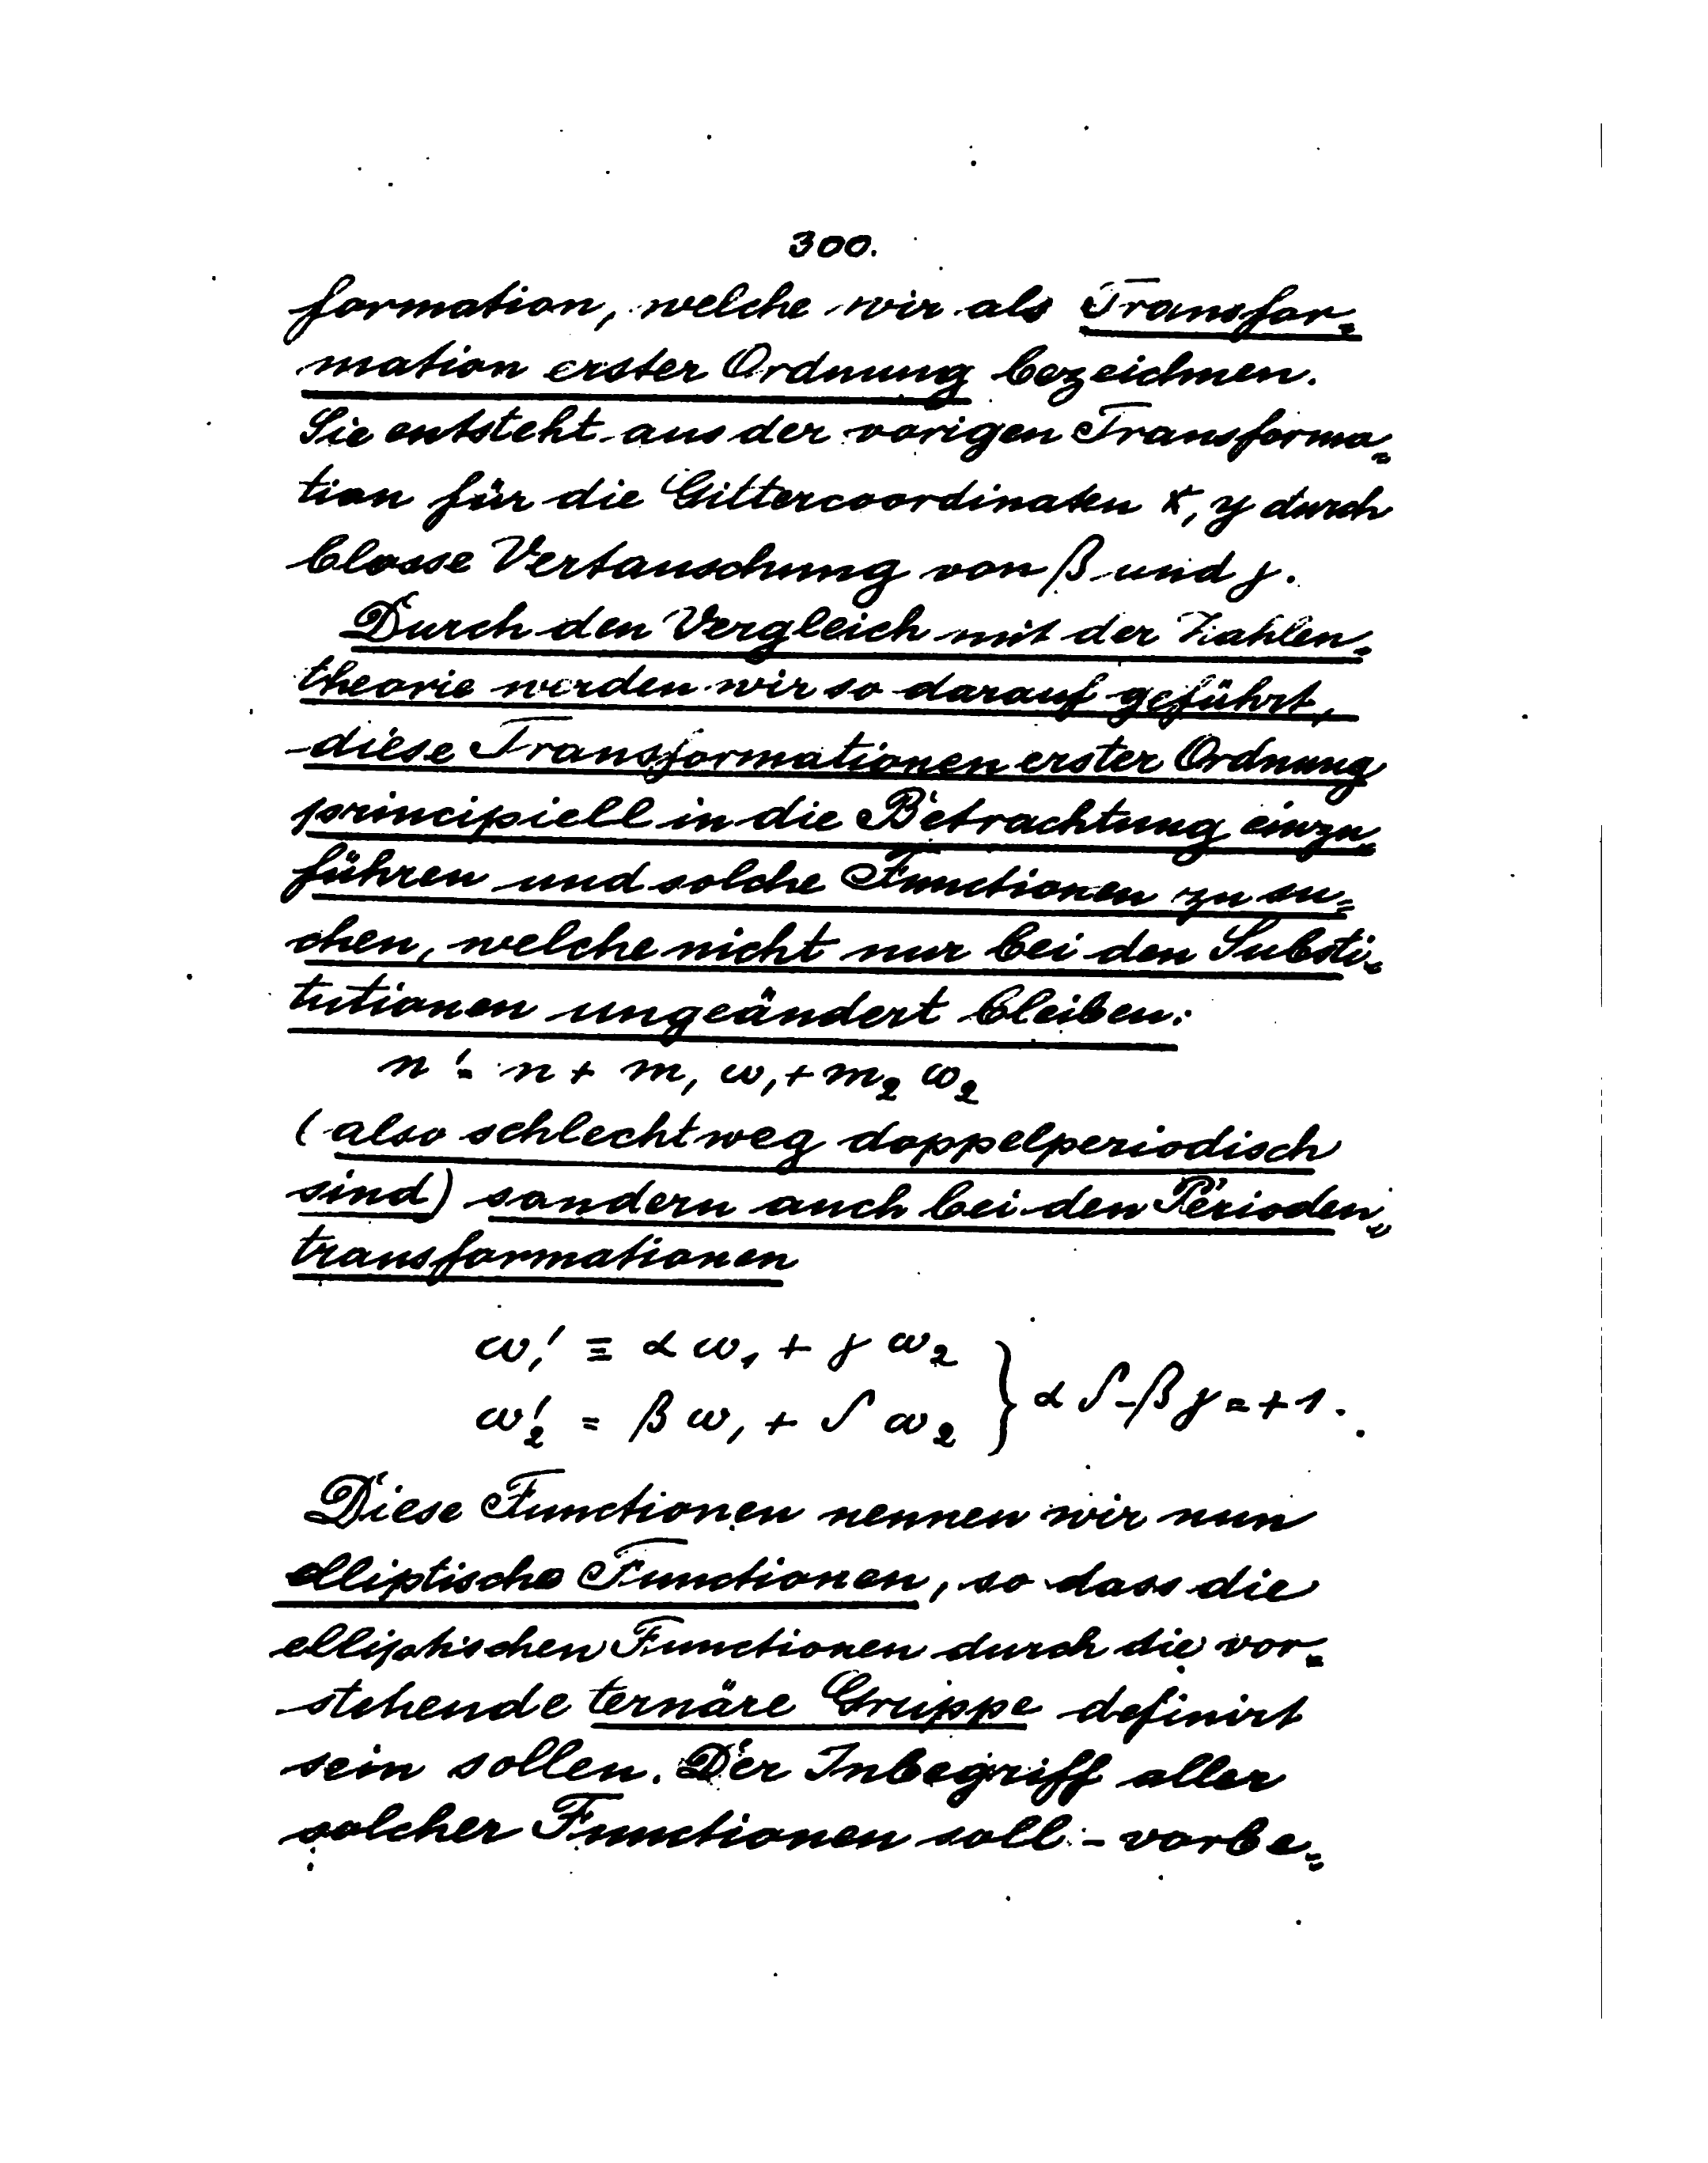 300.
formation, welche wir als Transfor=
mation erster Ordnung bezeichnen.
Sie entsteht aus der vorigen Transforma=
tion für die Gittercoordinaten x, y durch
blosse Vertauschung von β und γ.
Durch den Vergleich mit der Zahlen=
theorie werden wir so darauf geführt,
diese Transformationen erster Ordnung
principiell in die Betrachtung einzu=
führen und solche Functionen zu su=
chen, welche nicht nur bei den Substi=
tutionen ungeändert bleiben:
u' = u + m₁ ω₁ + m₂ ω₂
(also schlechtweg doppelperiodisch
sind) sondern auch bei den Perioden=
transformationen
ω₁' = α ω₁ + γ ω₂
ω₂' = β ω₁ + δ ω₂ } αδ - βγ = +1.
Diese Functionen nennen wir nun
elliptische Functionen, so dass die
elliptischen Functionen durch die vor=
stehende ternäre Gruppe definirt
sein sollen. Der Inbegriff aller
solcher Functionen soll - vorbe=